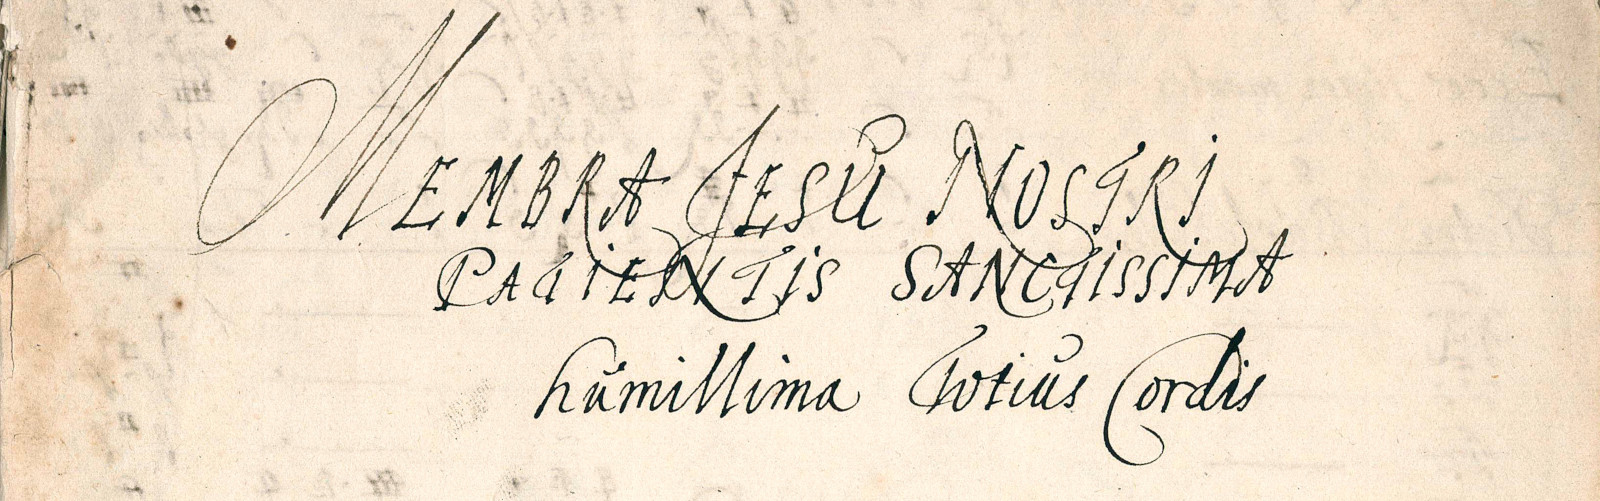 MEMBRA JESU NOSTRI
PATIENTIS SANCTISSIMA
humillima Totius Cordis